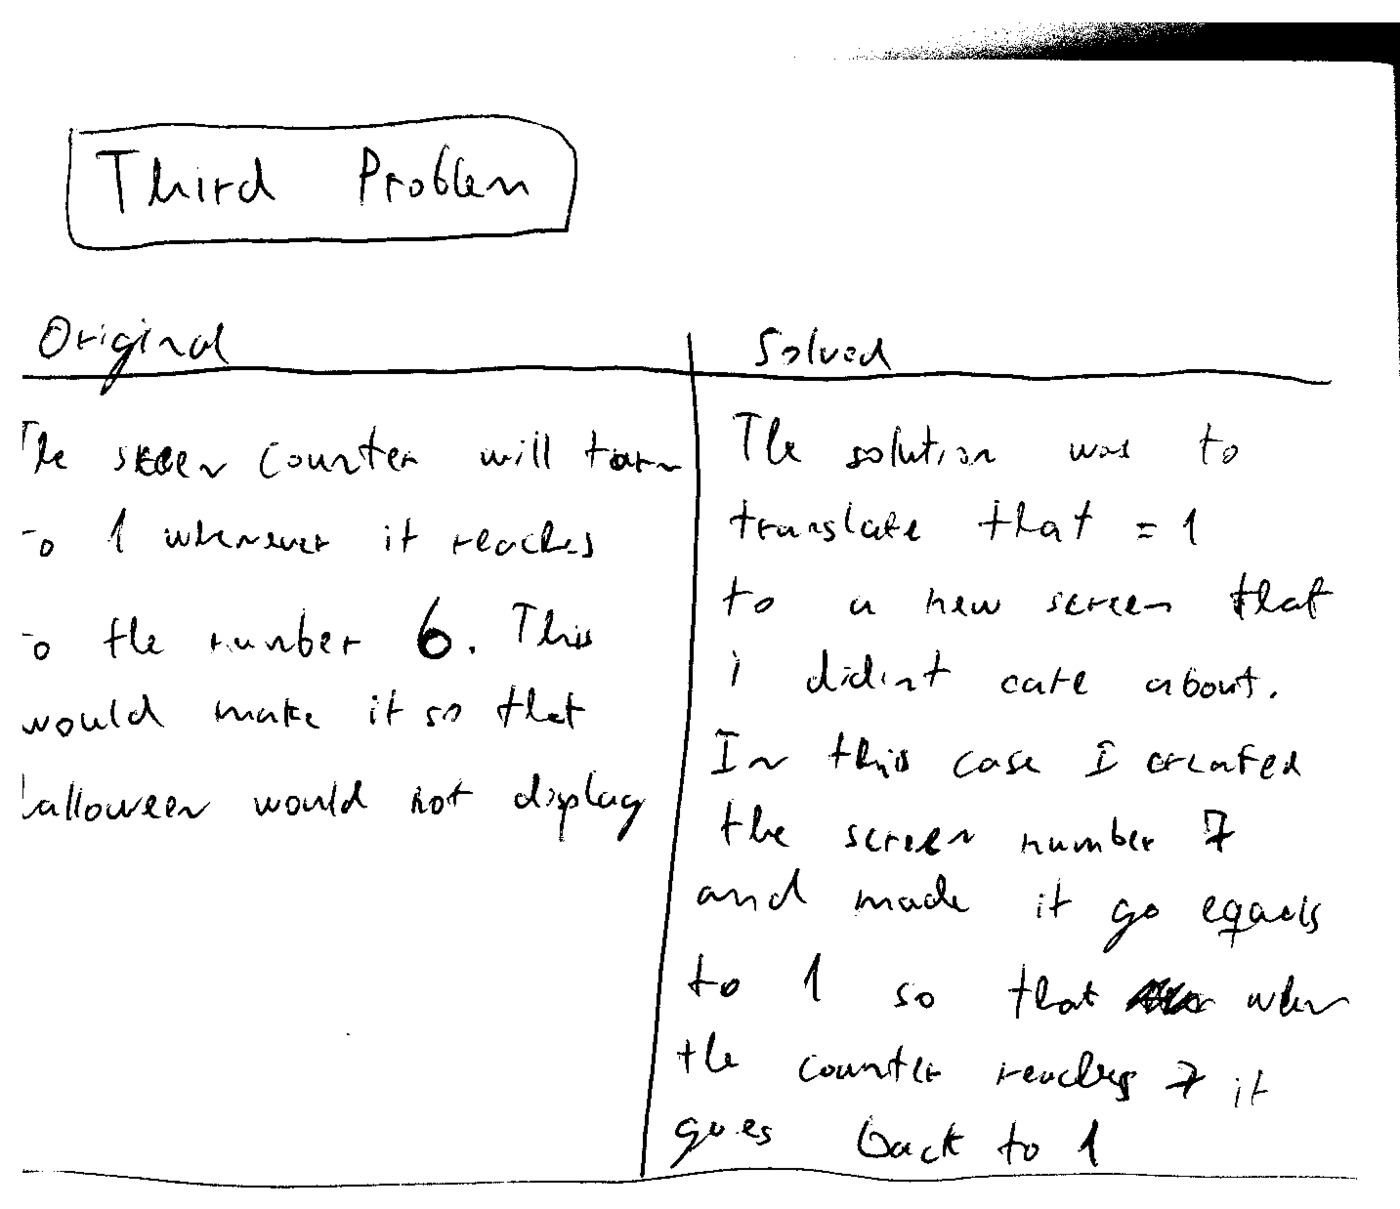 Third Problem
Original
The screen counter will turn
to 1 whenever it reaches
to the number 6. This
would make it so that
halloween would not display
Solved
The solution was to
translate that = 1
to a new screen that
i didint care about.
In this case I created
the screen number 7
and made it go equals
to 1 so that when
the counter reaches 7 it
goes back to 1